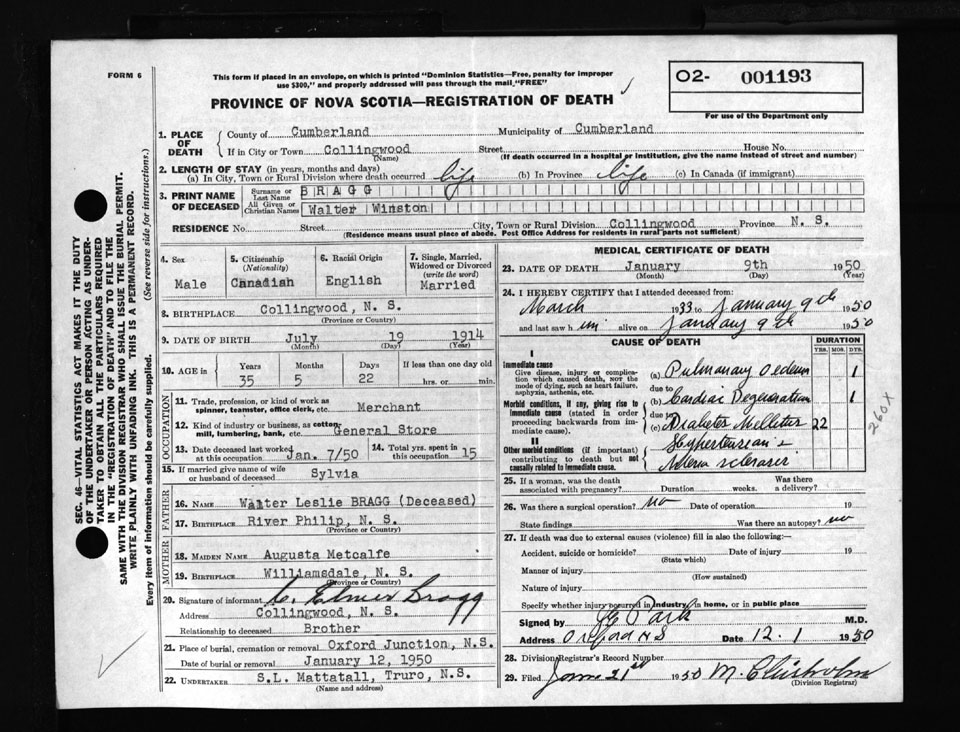 FORM 6
This form if placed in an envelope, on which is printed "Dominion Statistics—Free, penalty for improper
use $300," and properly addressed will pass through the mail "FREE"
PROVINCE OF NOVA SCOTIA—REGISTRATION OF DEATH
O2- 001193
For use of the Department only
1. PLACE OF DEATH { County of Cumberland Municipality of Cumberland
If in City or Town Collingwood Street House No.
(Name) (If death occurred in a hospital or institution, give the name instead of street and number)
2. LENGTH OF STAY (in years, months and days)
(a) In City, Town or Rural Division where death occurred life (b) In Province life (c) In Canada (if immigrant)
3. PRINT NAME OF DECEASED { Surname or Last Name BRAGG
All Given or Christian Names Walter Winston
RESIDENCE No. Street City, Town or Rural Division Collingwood Province N. S.
(Residence means usual place of abode. Post Office Address for residents in rural parts not sufficient)
4. Sex Male
5. Citizenship (Nationality) Canadian
6. Racial Origin English
7. Single, Married, Widowed or Divorced (write the word) Married
8. BIRTHPLACE Collingwood, N. S.
(Province or Country)
9. DATE OF BIRTH July 19 1914
(Month) (Day) (Year)
10. AGE in Years 35 Months 5 Days 22 If less than one day old hrs. or min.
OCCUPATION
11. Trade, profession, or kind of work as
spinner, teamster, office clerk, etc. Merchant
12. Kind of industry or business, as cotton
mill, lumbering, bank, etc. General Store
13. Date deceased last worked at this occupation Jan. 7/50 14. Total yrs. spent in this occupation 15
15. If married give name of wife
or husband of deceased Sylvia
FATHER
16. NAME Walter Leslie BRAGG (Deceased)
17. BIRTHPLACE River Philip, N. S.
(Province or Country)
MOTHER
18. MAIDEN NAME Augusta Metcalfe
19. BIRTHPLACE Williamsdale, N. S.
(Province or Country)
20. Signature of informant C. Elmer Bragg
Address Collingwood, N. S.
Relationship to deceased Brother
21. Place of burial, cremation or removal Oxford Junction, N.S.
Date of burial or removal January 12, 1950
22. UNDERTAKER S.L. Mattatall, Truro, N.S.
(Name and address)
MEDICAL CERTIFICATE OF DEATH
23. DATE OF DEATH January 9th 1950
(Month) (Day) (Year)
24. I HEREBY CERTIFY that I attended deceased from:
March 1933 to January 9th 1950
and last saw him alive on January 9th 1950
CAUSE OF DEATH DURATION
YRS. MOS. DYS.
I
Immediate cause
Give disease, injury or complication which caused death, NOT the mode of dying, such as heart failure, asphyxia, asthenia, etc.
(a) Pulmonary Oedema 1
due to
Morbid conditions, if any, giving rise to immediate cause (stated in order proceeding backwards from immediate cause).
(b) Cardiac Degeneration 1
due to
(c) Diabetes Mellitus 22
260X
II
Other morbid conditions (if important) contributing to death but not causally related to immediate cause.
Hypertension &
25. If a woman, was the death associated with pregnancy? Duration weeks. Was there a delivery?
26. Was there a surgical operation? no Date of operation 19
State findings Was there an autopsy? no
27. If death was due to external causes (violence) fill in also the following:—
Accident, suicide or homicide? Date of injury 19
(State which)
Manner of injury
(How sustained)
Nature of injury
Specify whether injury occurred in industry, in home, or in public place
Signed by Park M.D.
Address Oxford NS Date 12.1 1950
28. Division Registrar's Record Number
29. Filed 21st 1950 M. Chisholm
(Division Registrar)
SEC. 46—VITAL STATISTICS ACT MAKES IT THE DUTY
OF THE UNDERTAKER OR PERSON ACTING AS UNDER-
TAKER TO OBTAIN ALL THE PARTICULARS REQUIRED
IN THE "REGISTRATION OF DEATH" AND TO FILE THE
SAME WITH THE DIVISION REGISTRAR WHO SHALL ISSUE THE BURIAL PERMIT.
WRITE PLAINLY WITH UNFADING INK. THIS IS A PERMANENT RECORD.
Every item of information should be carefully supplied. (See reverse side for instructions.)